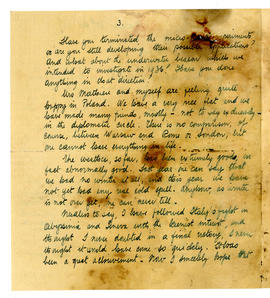 3.
Have you terminated the micro
or are you still developing their possible
And what about the underwater beacon which we
intended to investigate in 1936? Have you done
anything in that direction?
Mrs Matthews and myself are feeling quite
happy in Poland. We have a very nice flat and we
have made many friends mostly - not to say exclusively -
in the diplomatic circle. There is no comparison, of
course, between Warsaw and Rome or London, but
one cannot have everything in life.
The weather, so far, has been extremely good, in
fact abnormally good. Last year one can say that
we had no winter at all, and this year we have
not yet had any real cold spell. Anyhow as winter
is not over yet, we can never tell.
Needless to say, I have followed Italy's fight in
Abyssinia and knew with the keenest interest and
I never doubted in a final victory. I never
thought it would have come so quickly. It has
been a great achievement. Now I sincerely hope that